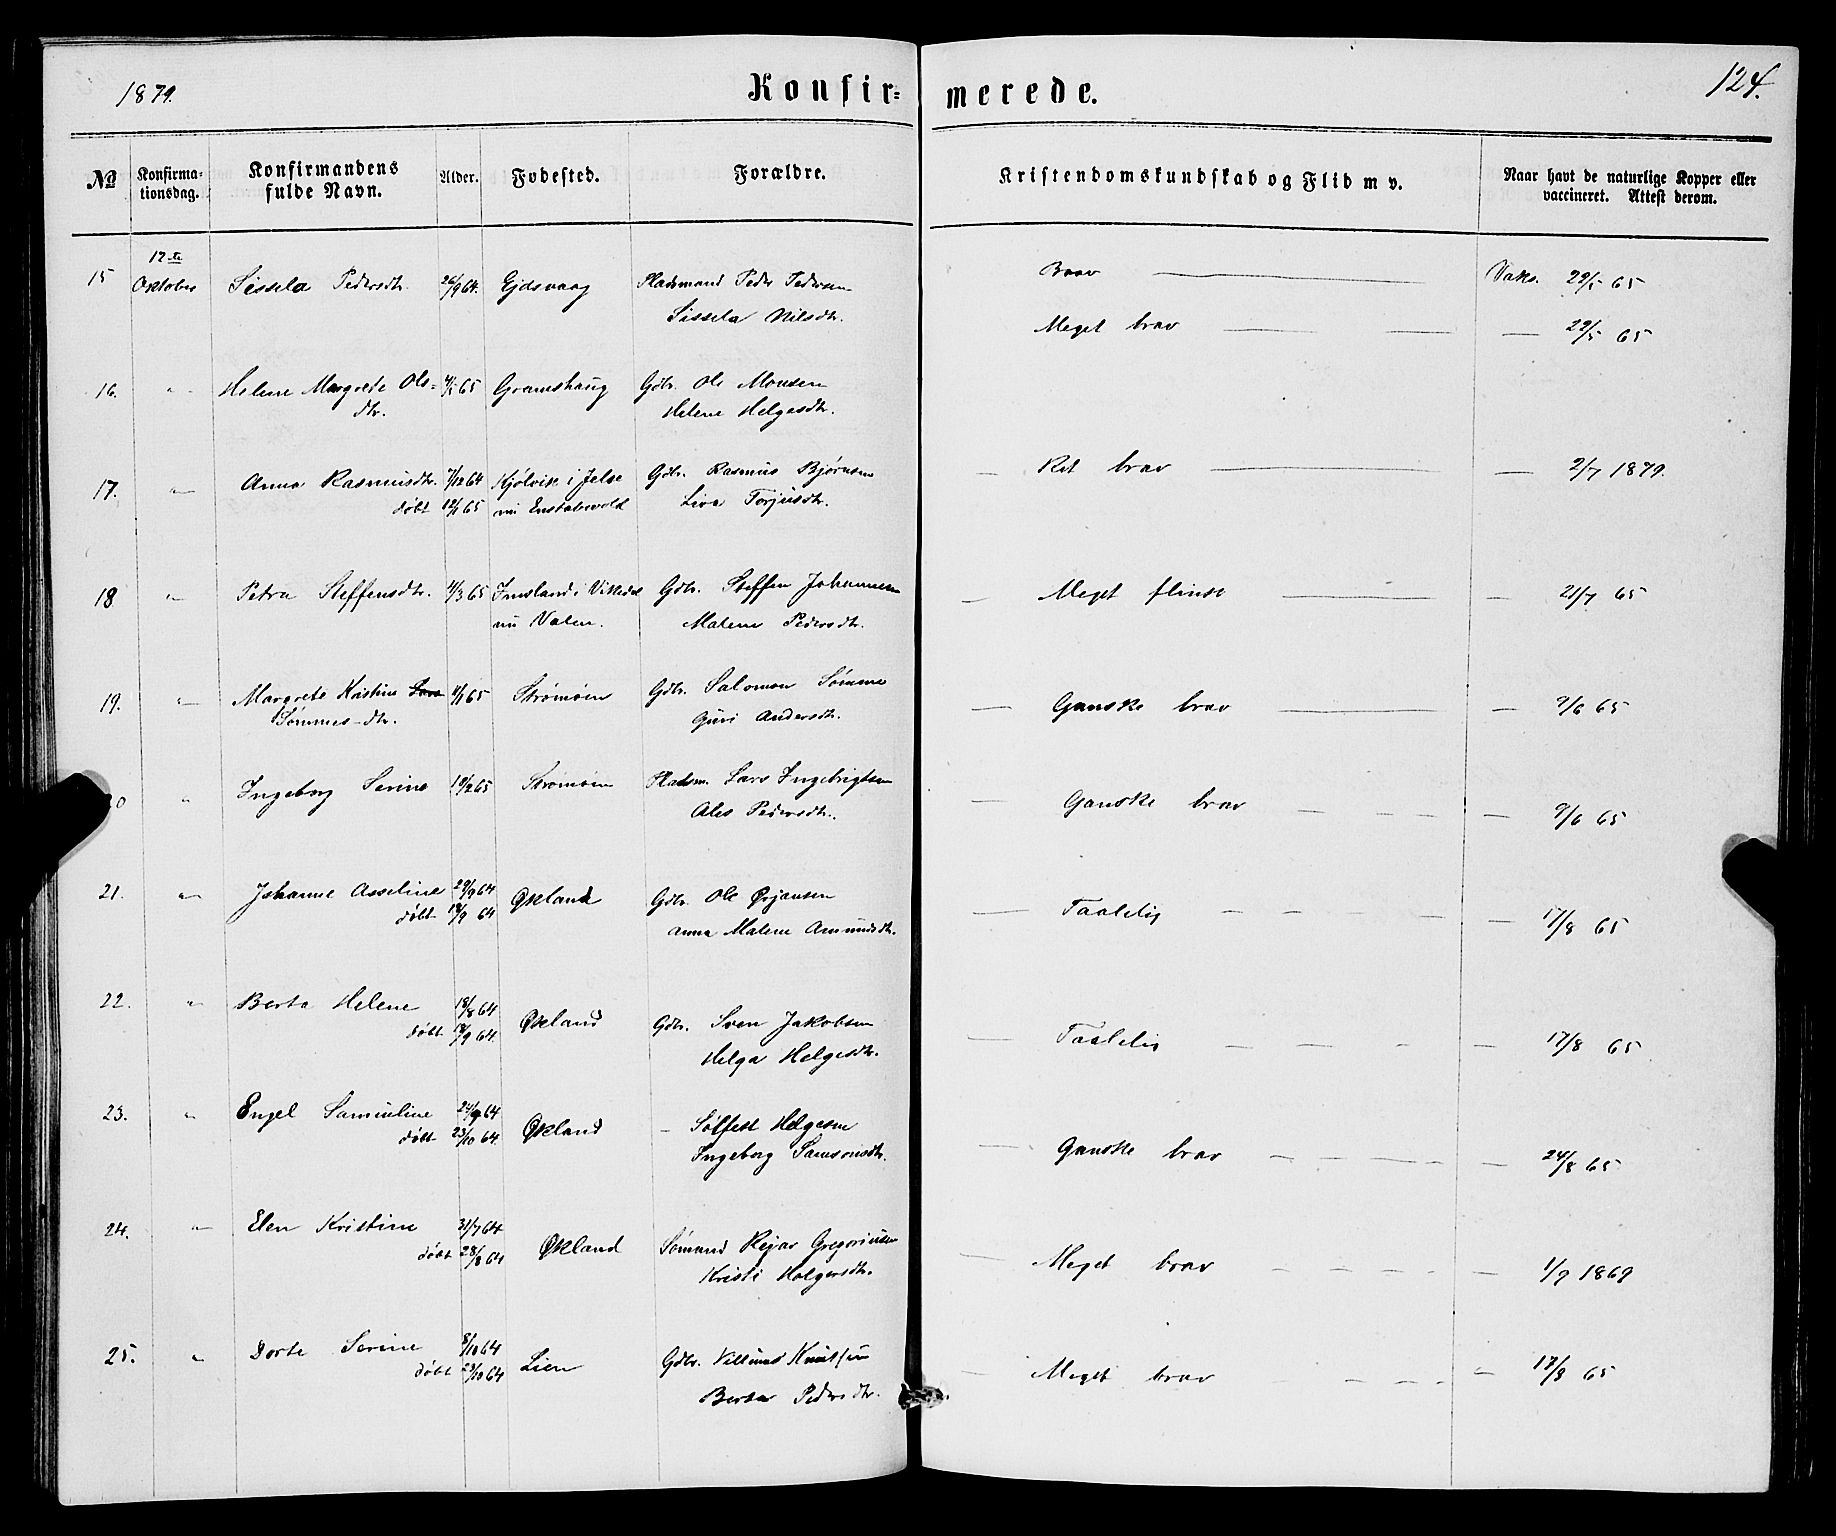 1879.
Konfir-
merede.
124.
№
Konfirma-
tionsdag.
Konfirmandens
fulde Navn.
Alder.
Fødested.
Forældre.
Kristendomskundskab og Flid m v.
Naar havt de naturlige Kopper eller
vaccineret. Attest derom.
12te
15 Oktober Sissela Pedersdtr. 26/9 64. Ejdsvaag Pladsmand Peder Pedersen Brav Vaks. 22/5 65
Sissela Nilsdtr.
16. " Helene Margrete Ols- 65 Gramshaug Gdbr. Ole Monsen Meget brav — 22/5 65
dtr. Helene Helgesdtr.
17. " Anna Rasmusdtr. 7/12 64 Kjølvik i Jelse Gdbr. Rasmus Bjørnsen — Ret brav — 2/7 1879.
døbt 12/1 65 nu Enstabøvold Liva Torjusdtr.
18 " Petra Steffensdtr. 4/3 65 Imsland i Vikedal Gdbr. Steffen Johannesen — Meget flink — 21/7 65
nu Valen. Malene Pedersdtr.
19. " Margrete Kristine 65 Strømøen Gdbr. Salomon Sømme — Ganske brav — 9/6 65
Sømmes-dtr. Guri Andersdtr.
" Ingeborg Serine 19/2 65 Strømøen Pladsm. Lars Ingebrigtsen — Ganske brav — 9/6 65
Ales Pedersdtr.
21. " Johanne Asseline 29/9 64 Økland Gdbr. Ole Ørjansen — Taalelig — 17/8 65
døbt 64 Anna Malene Amundsdtr.
22. " Berta Helene 18/8 64 Økland Gdbr. Sven Jakobsen — Taalelig — 17/8 65
døbt 18/9 64. Helga Helgesdtr.
23. " Engel Samueline 24/9 64 Økland — Sølfest Helgesen — Ganske brav — 24/8 65
døbt 23/10 64. Ingeborg Samsonsdtr.
24. " Elen Kristine 31/7 64 Økland Sømand Rejar Gregoriusen — Meget brav — 1/9 1869
døbt 28/8 64 Kristi Holgersdtr.
25. " Dorte Serine 8/10 64 Lien Gdbr. Villums Knutsen — Meget brav — 17/8 65
døbt 23/10 64 Berta Pedersdtr.